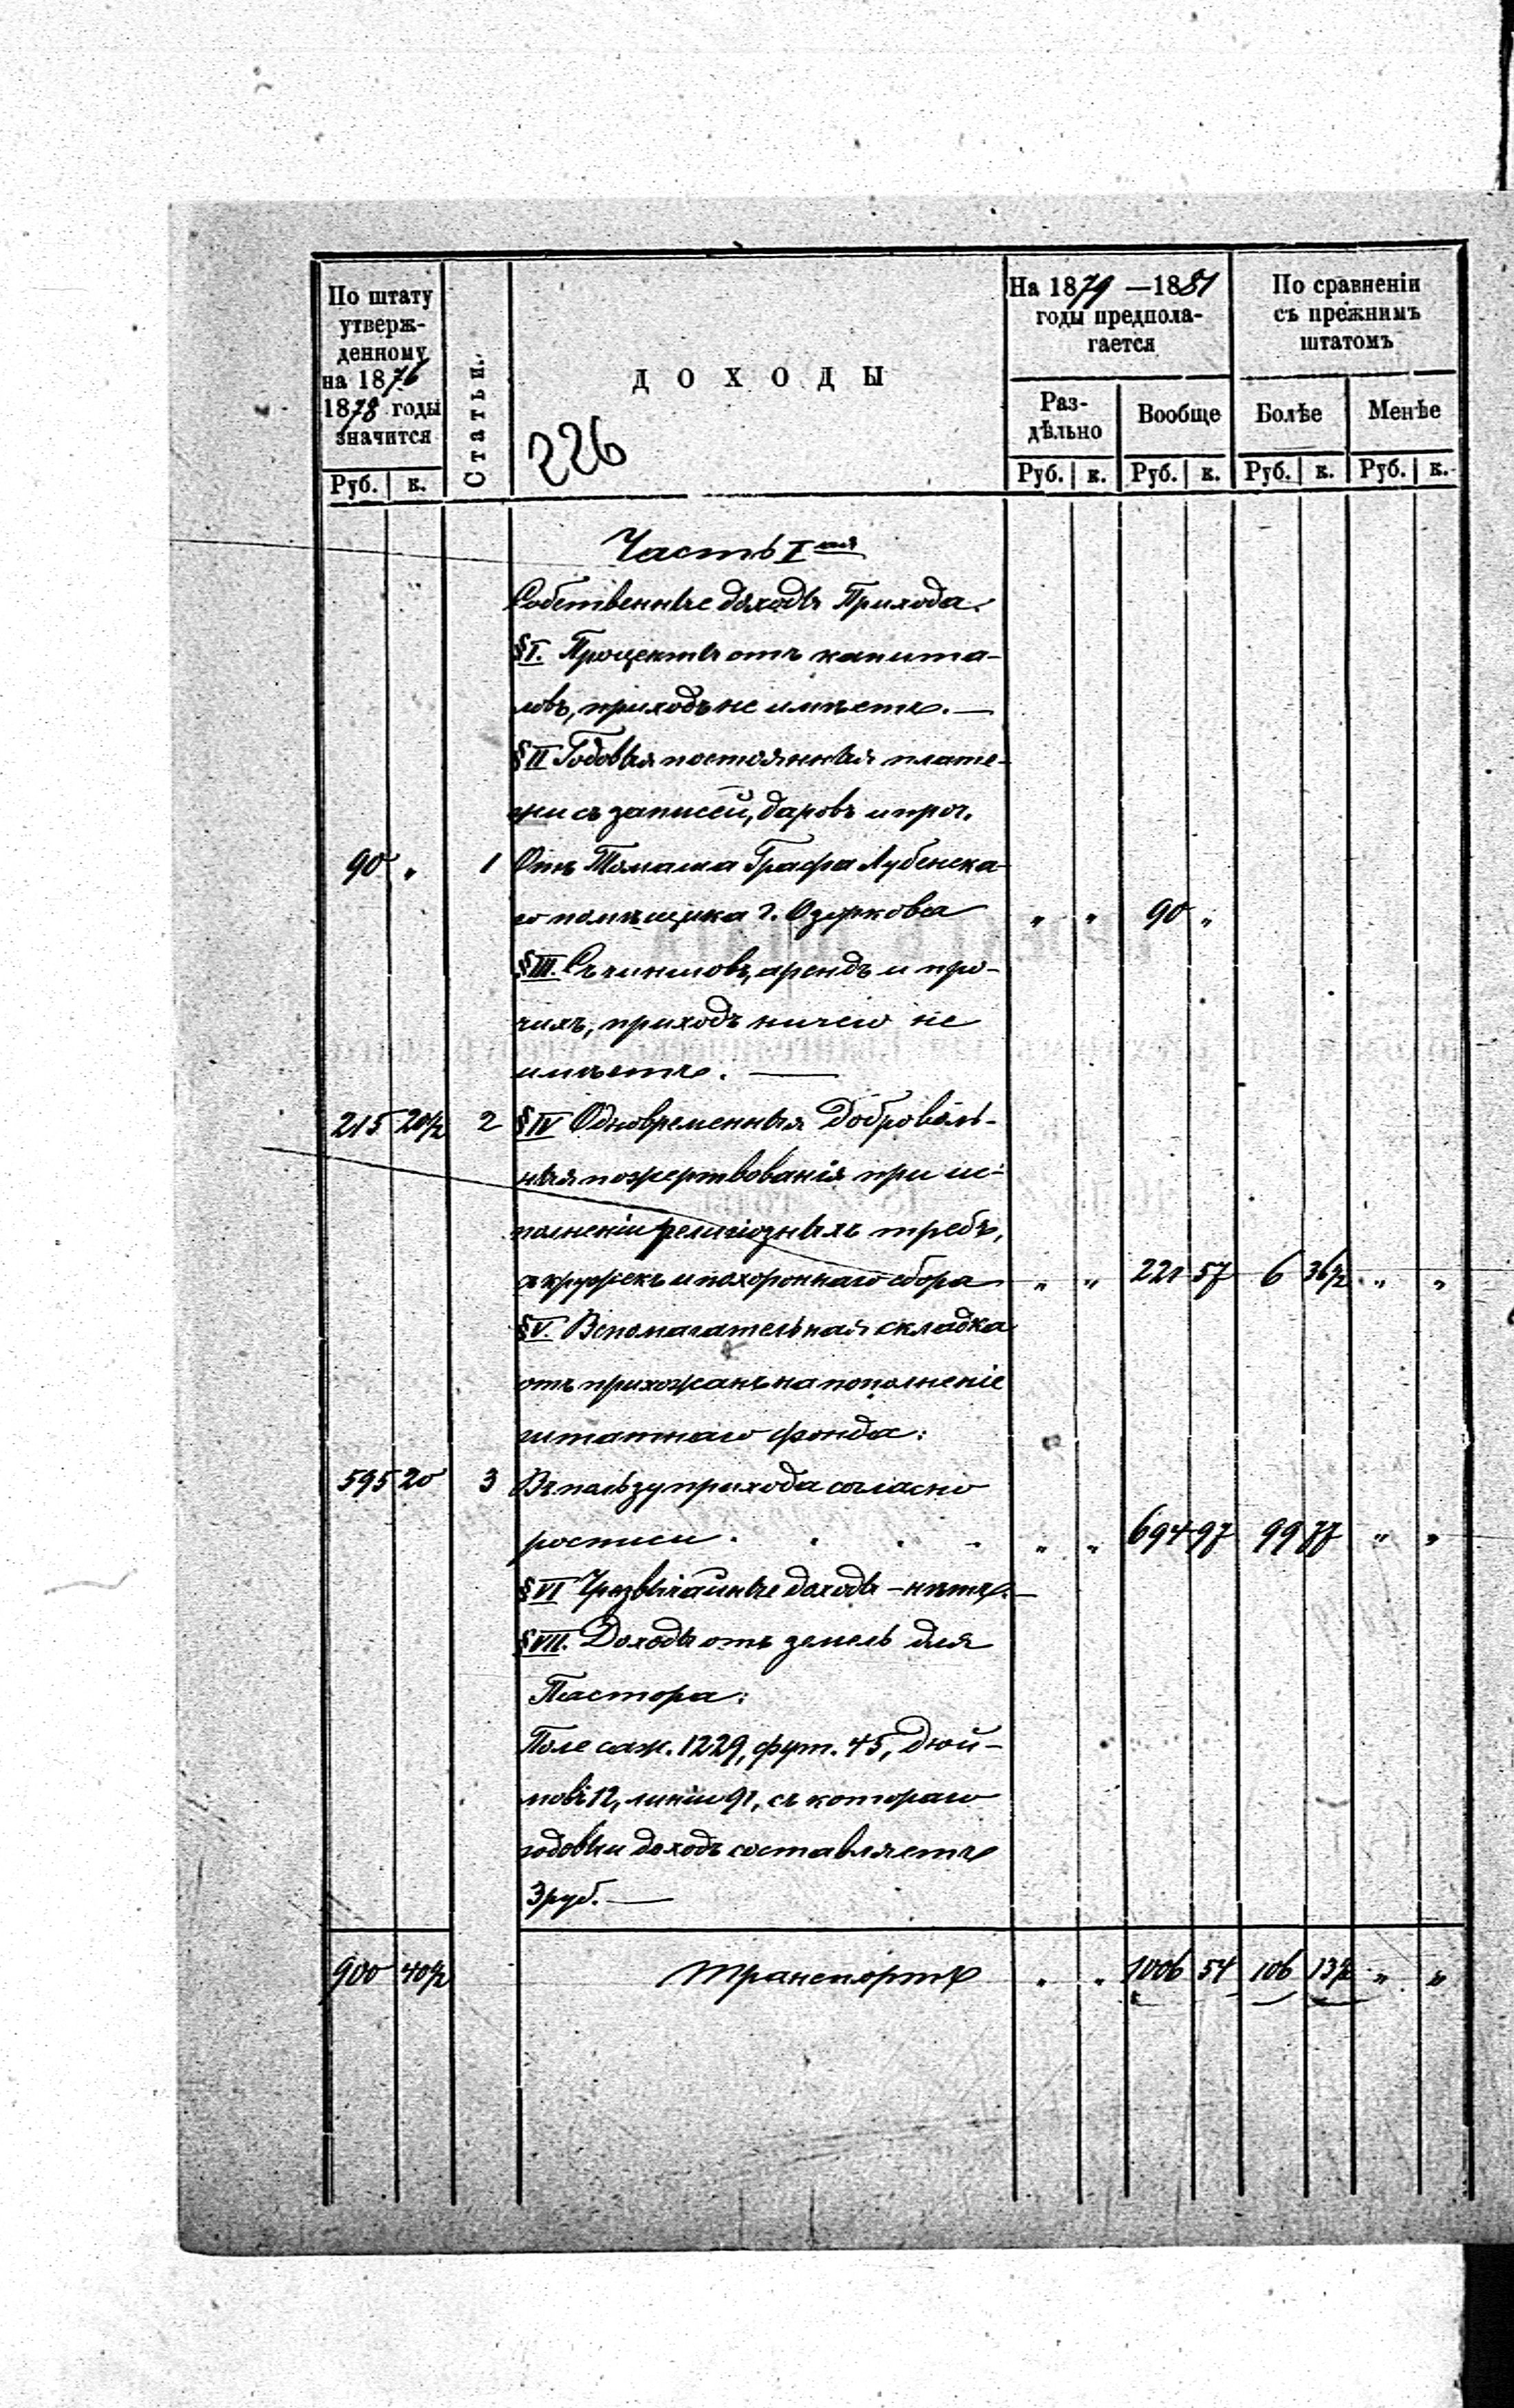 По штату
утверж-
денному
на 1876
1878 годы
значится
Руб. к.
Статьи.
ДОХОДЫ
226
На 1879 —1881
годы предпола-
гается
Раз-
дѣльно
Вообще
Руб. к. Руб. к.
По сравненіи
съ прежнимъ
штатомъ
Болѣе Менѣе
Руб. к. Руб. к.
Часть I ая
Собственные доходы Прихода.
§ I. Проценты отъ капита-
ловъ, приходъ не имѣетъ. —
§ II Годовыя постоянныя плате-
жи съ записей, даровъ и проч.
90 „ 1 Отъ Томаша Графа Лубенска-
го помѣщика г. Озоркова „ „ 90 „
§ III. Съ чиншовъ, арендъ и про-
чихъ, приходъ ничего не
имѣетъ. —
215 20½ 2 § IV Одновременныя Доброволь-
ныя пожертвованія при ис-
полненіи религіозныхъ требъ,
съ кружекъ и похороннаго сбора „ „ 221 57 6 36½ „ „
§ V. Вспомагательная складка
отъ прихожанъ на пополненіе
штатнаго фонда:
595 20 3 Въ пользу прихода согласно
росписи . . . . „ „ 694 97 99 77 „ „
§ VI Чрезвычайные доходы – нѣтъ. —
§ VII. Доходы отъ земель для
Пастора:
Поле саж. 1229, фут. 45, дюй-
мовъ 12, линіи 91, съ котораго
годовый доходъ составляетъ
3 руб. —
900 40½ Транспортъ „ „ 1006 54 106 13½ „ „